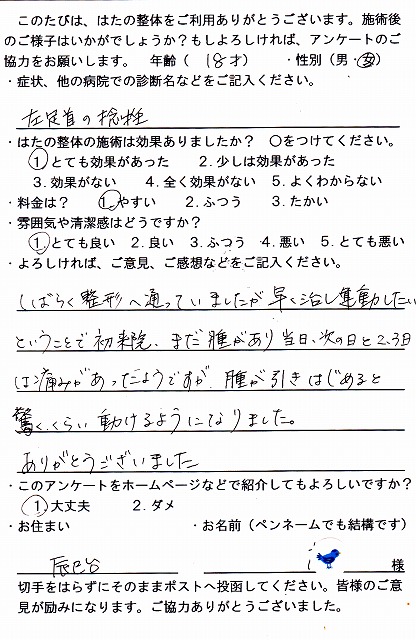 このたびは、はたの整体をご利用ありがとうございます。施術後
のご様子はいかがでしょうか？もしよろしければ、アンケートのご
協力をお願いします。　年齢（ 18才）　・性別（男・女）
・症状、他の病院での診断名などをご記入ください。
左足首の捻挫
・はたの整体の施術は効果ありましたか？　〇をつけてください。
1. とても効果があった　　2. 少しは効果があった
3. 効果がない　　4. 全く効果がない　5. よくわからない
・料金は？　1. やすい　　2. ふつう　　3. たかい
・雰囲気や清潔感はどうですか？
1. とても良い　2. 良い　3. ふつう　4. 悪い　5. とても悪い
・よろしければ、ご意見、ご感想などをご記入ください。
しばらく整形へ通っていましたが早く治し運動したい
ということで初来院、まだ腫があり当日、次の日と2、3日
は痛みがあったようですが、腫が引きはじめると
驚くくらい動けるようになりました。
ありがとうございました
・このアンケートをホームページなどで紹介してもよろしいですか？
1. 大丈夫　　2. ダメ
・お住まい　　　　　　　・お名前（ペンネームでも結構です）
辰巳谷　　　　　　　　　　　　　様
切手をはらずにそのままポストへ投函してください。皆様のご意
見が励みになります。ご協力ありがとうございました。